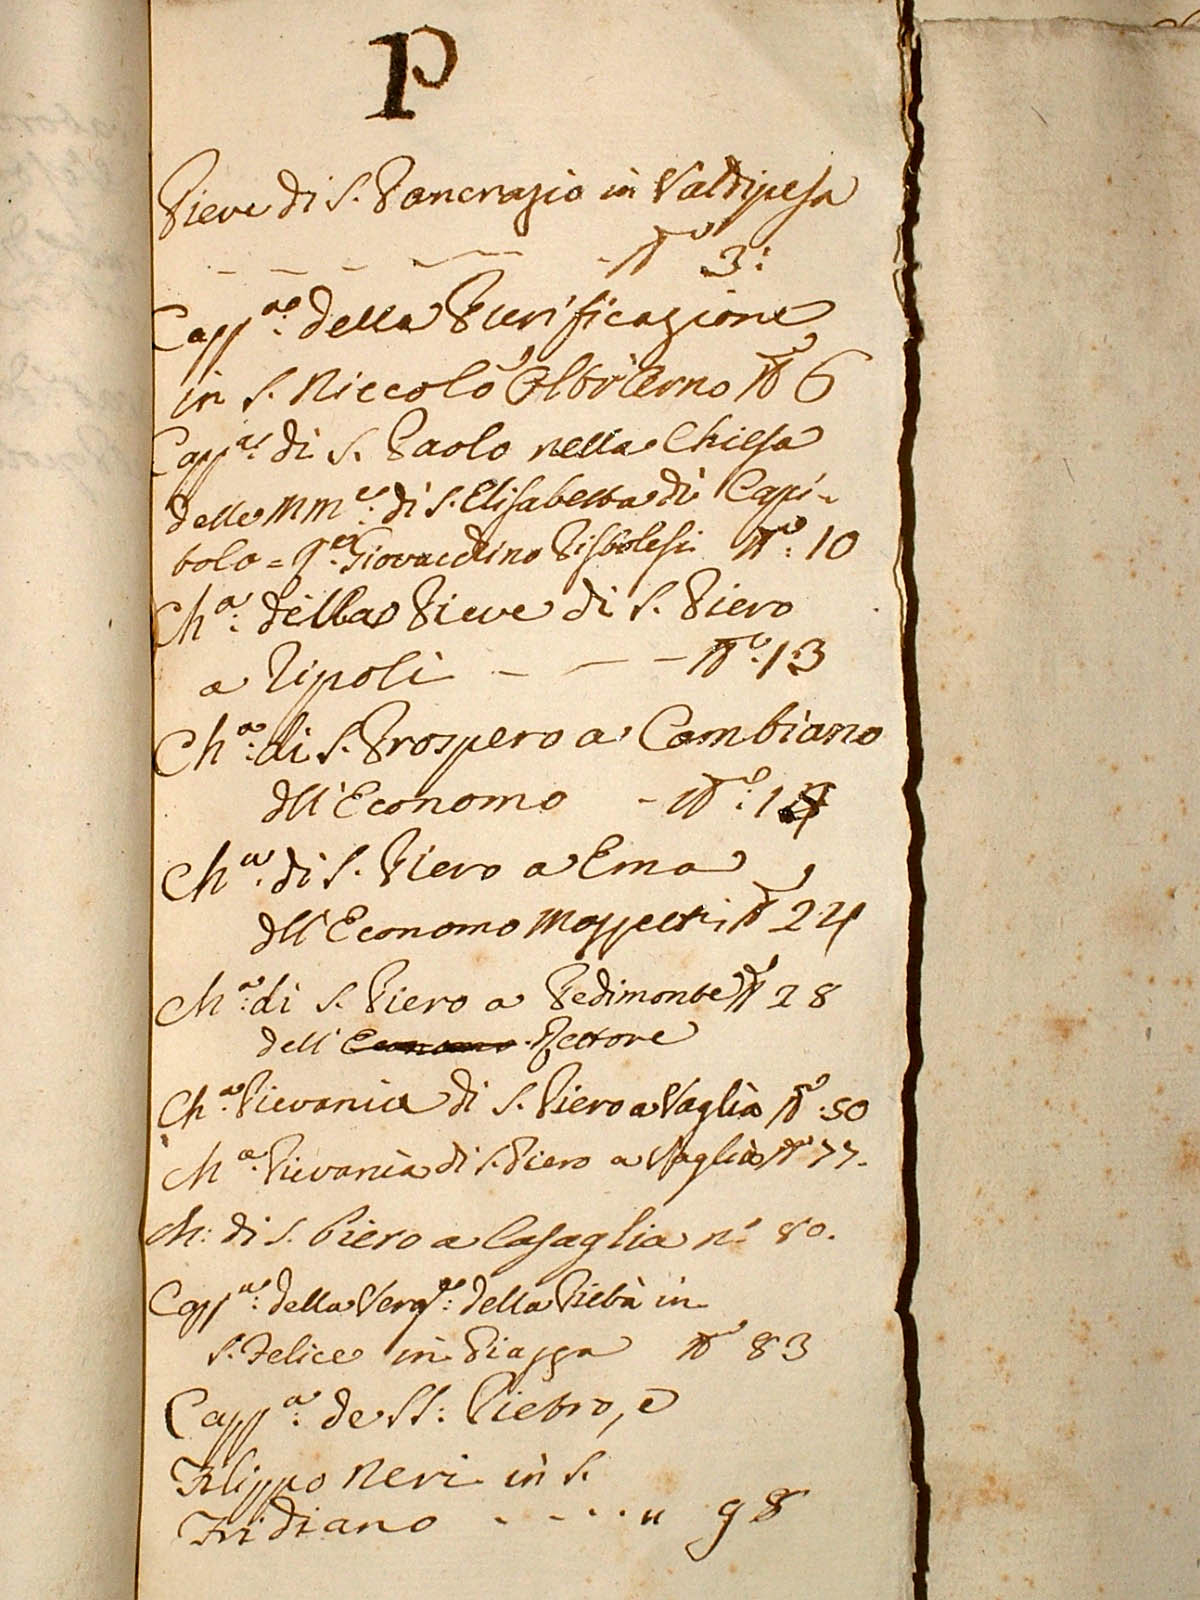 P
Pieve di S. Pancrazio in Valdipesa
- - - - - N.o 3:
Capp.a: della Purificazione
in S. Niccolò Oltr'Arno N.o 6
Capp.a: di S. Paolo nella Chiesa
delle MM.e: di S. Elisabetta di Capi-
tolo = Giovacchino Pistolesi N.o: 10
Ch.a: della Pieve di S. Piero
a Ripoli - - - N.o: 13
Ch.a: di S. Prospero a Cambiano
dll'Economo - N.o:
Ch.a. di S. Piero a Ema
dll'Economo N.o 24
Ch.a: di S. Piero a Pedimonte N.o 28
dell' Economo Rettore
Ch.a: Pievania di S. Piero a Vaglia N.o: 50
Ch.a: Pievania di S. Piero a Vaglia N.o 77.
Ch: di S. Piero a Casaglia n.o 80.
Capp.a: della Verg.e: della Pietà in
S. Felice in Piazza N.o 83
Capp.a: de SS: Pietro, e
Filippo Neri in S.
Fridiano - - - . . " 98